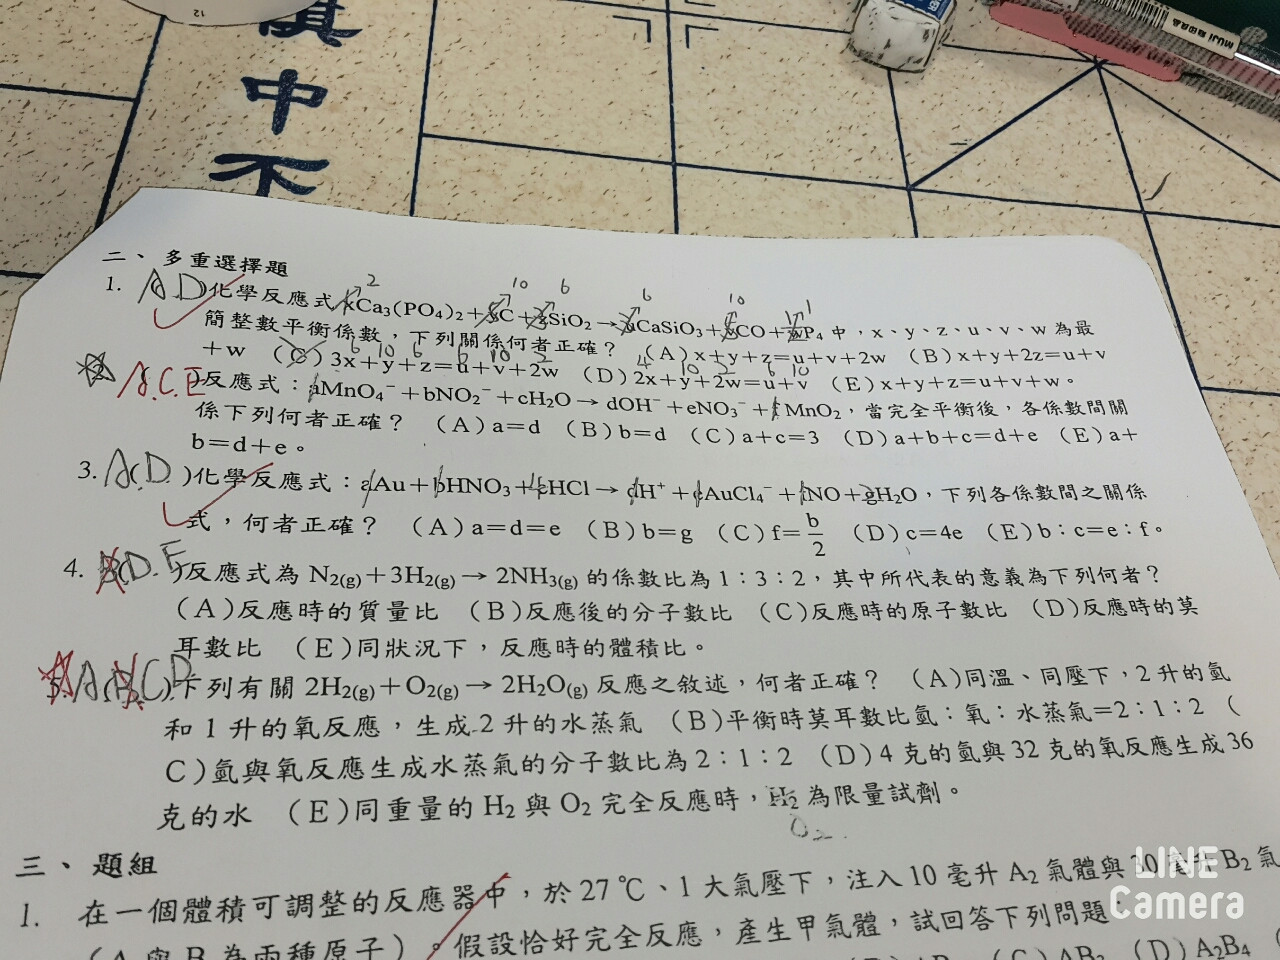 12
慎
中
不
MUJI 無印良品
二、多重選擇題
2 10 6 6 10 1
1. A(D)化學反應式 xCa₃(PO₄)₂+yC+zSiO₂→uCaSiO₃+vCO+wP₄ 中，x、y、z、u、v、w 為最
簡整數平衡係數，下列關係何者正確？ (A) x+y+z=u+v+2w (B) x+y+2z=u+v
+w (C) 3x+y+z=u+v+2w (D) 2x+y+2w=u+v (E) x+y+z=u+v+w。
A.C.E 反應式：aMnO₄⁻+bNO₂⁻+cH₂O→dOH⁻+eNO₃⁻+f MnO₂，當完全平衡後，各係數間關
係下列何者正確？ (A) a=d (B) b=d (C) a+c=3 (D) a+b+c=d+e (E) a+
b=d+e。
3. A(D.)化學反應式：aAu+bHNO₃+cHCl→dH⁺+eAuCl₄⁻+fNO+gH₂O，下列各係數間之關係
式，何者正確？ (A) a=d=e (B) b=g (C) f=b/2 (D) c=4e (E) b：c=e：f。
4. (D.E)反應式為 N₂(g)+3H₂(g)→2NH₃(g) 的係數比為 1：3：2，其中所代表的意義為下列何者？
(A)反應時的質量比 (B)反應後的分子數比 (C)反應時的原子數比 (D)反應時的莫
耳數比 (E)同狀況下，反應時的體積比。
5. A(B.C.D)下列有關 2H₂(g)+O₂(g)→2H₂O(g) 反應之敘述，何者正確？ (A)同溫、同壓下，2 升的氫
和 1 升的氧反應，生成 2 升的水蒸氣 (B)平衡時莫耳數比氫：氧：水蒸氣=2：1：2 (
C)氫與氧反應生成水蒸氣的分子數比為 2：1：2 (D) 4 克的氫與 32 克的氧反應生成 36
克的水 (E)同重量的 H₂ 與 O₂ 完全反應時，H₂ 為限量試劑。
O₂
三、題組
1. 在一個體積可調整的反應器中，於 27℃、1 大氣壓下，注入 10 毫升 A₂ 氣體與 30 毫升 B₂ 氣
(A 與 B 為兩種原子)。假設恰好完全反應，產生甲氣體，試回答下列問題
(C) AB₃ (D) A₂B₄
LINE
Camera